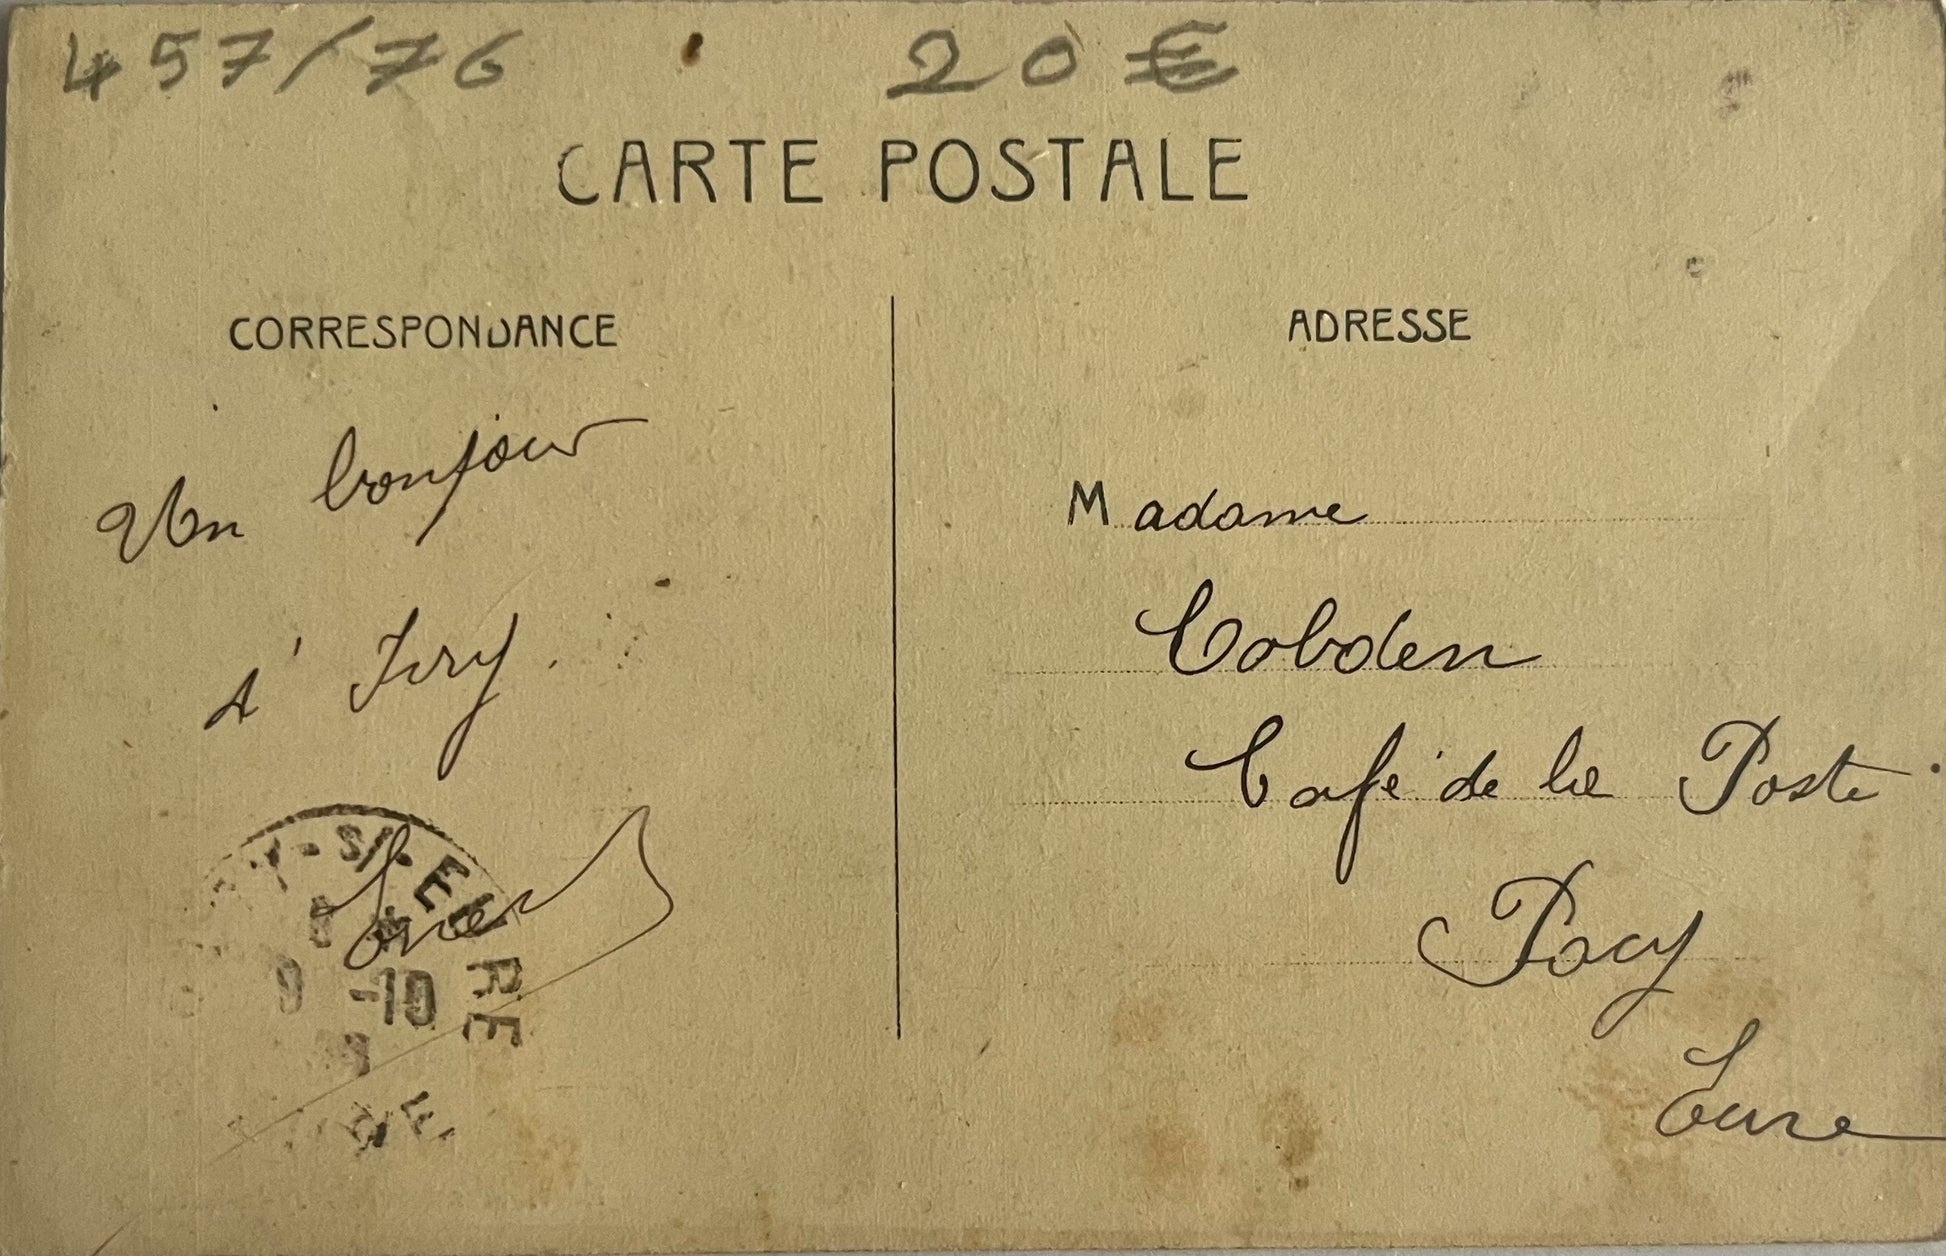 457/76 20 €
CARTE POSTALE
CORRESPONDANCE
Un bonjour
d'Ivry.
Y-S/-EURE
9 -10
ADRESSE
Madame
Cobden
Café de la Poste
Pacy
Eure